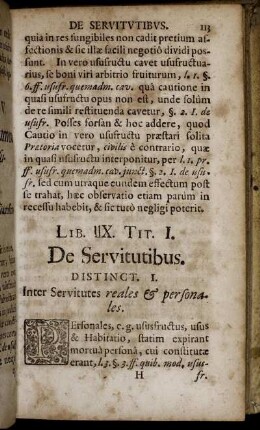 DE SERVITVTIBVS. 113
quia in res fungibiles non cadit pretium af-
fectionis & sic illæ facili negotiô dividi pos-
sunt. In vero usufructu cavet usufructua-
rius, se boni viri arbitrio fruiturum, l. 1. §.
6. ff. usufr. quemadm. cav. quâ cautione in
quasi usufructu opus non est, unde solùm
de re simili restituenda cavetur, §. 2. I. de
usufr. Posses forsan & hoc addere, quod
Cautio in vero usufructu præstari solita
Prætoria vocetur, civilis è contrario, quæ
in quasi usufructu interponitur, per l. 1. pr.
ff. usufr. quemadm. cav. junct. §. 2. I. de usu-
fr. sed cum utraque eundem effectum post
se trahat, hæc observatio etiam parùm in
recessu habebit, & sic tutò negligi poterit.
LIB. IIX. TIT. I.
De Servitutibus.
DISTINCT. I.
Inter Servitutes reales & persona-
les.
PErsonales, e. g. ususfructus, usus
& Habitatio, statim expirant
mortuâ personâ, cui constitutæ
erant, l. 3. §. 3. ff. quib. mod. usus-
H fr.